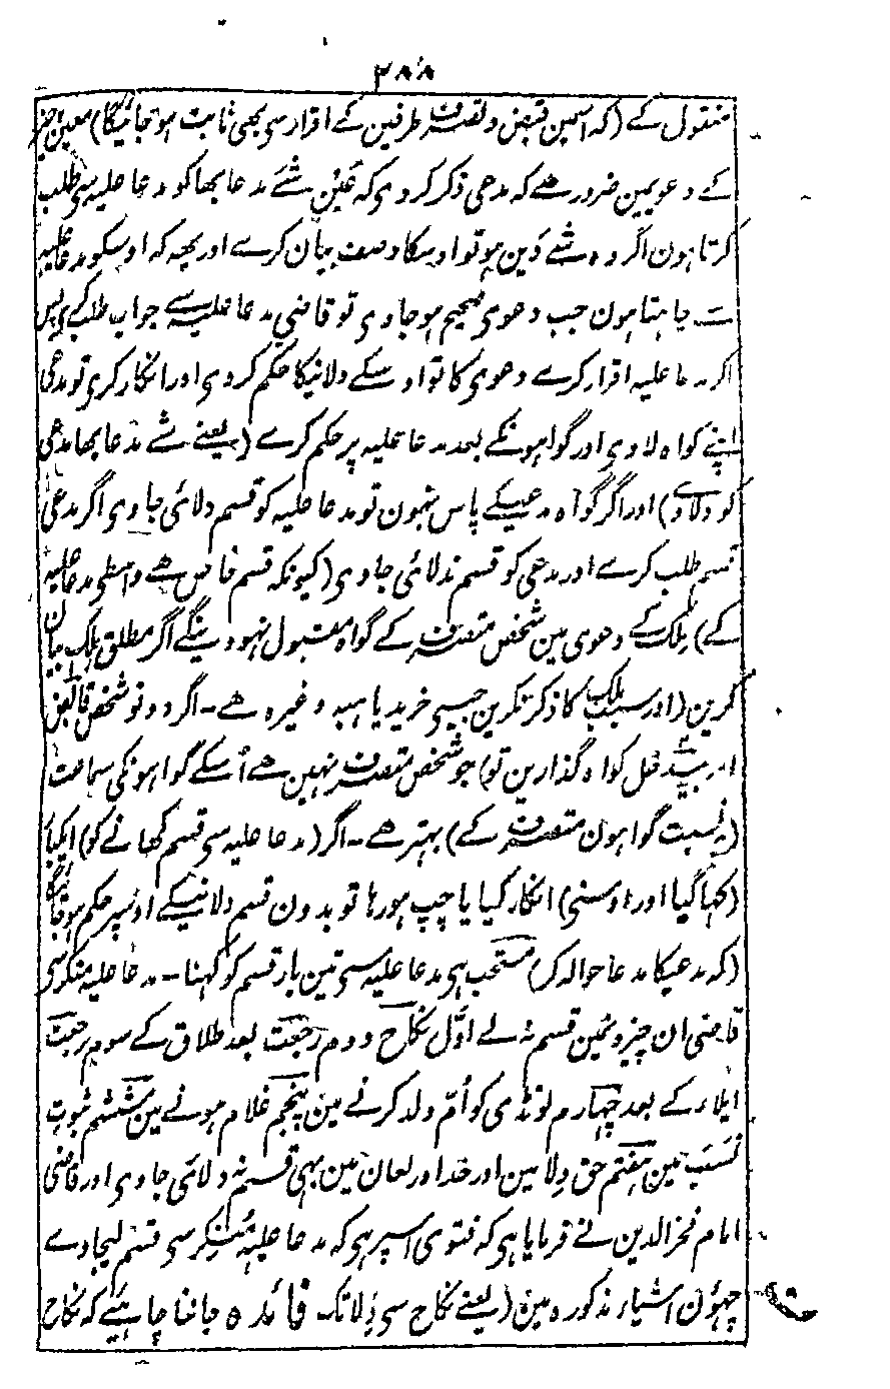 ۲۸۸
منقول کے (کہ اسمین قبض و تصرف طرفین کے اقرار سی بھی ثابت ہو جائیگا) معین چیز
کے دعویمین ضرور ھے کہ مدعی ذکر کردی کہ عَین شَے مدعا بھا کو مدعا علیہ سی طلب
کرتا ہون اگر وہ شے دَین ہو تو اوسکا وصف بیان کرے اور یھہ کہ اوسکو مدعا علیہ
سے چاہتا ہون جب دعوی صحیح ہو جاوی تو قاضی مدعا علیہ سے جواب طلب کری پس
اگر مدعا علیہ اقرار کرے دعوی کا تو اوسکے دلانیکا حکم کردی اور انکار کری تو مدعی
اپنے گواہ لاوی اور گواہونکے بعد مدعا علیہ پر حکم کرے (یعنے شے مدعا بھا مدعی
کو دلاوے) اور اگر گواہ مدعیکے پاس نہون تو مدعا علیہ کو قسم دلائی جاوی اگر مدعی
قسم طلب کرے اور مدعی کو قسم ندلائی جاوی (کیونکہ قسم خاص ھے واسطی مدعا علیہ
کے) مِلک کے دعوی مین شخص متصرف کے گواہ مقبول نہووینگے اگر مطلق مِلک بیان
کرین (اور سبب مِلک کا ذکر نکرین جیسی خرید یا ہبہ وغیرہ ھے۔ اگر دونو شخص قابض
اور بیدخل گواہ گذارین تو) جو شخص متصرف نہین ھے اُسکے گواہونکی سماعت
(بہ نسبت گواہون متصرف کے) بہتر ھے۔ اگر (مدعا علیہ سی قسم کھانے کو) ایکبار
(کہا گیا اور اوسنی) انکار کیا یا چپ ہو رہا تو بدون قسم دلانیکے اوسپر حکم ہو جائیگا
(کہ مدعیکا مدعا حوالہ کر) مستحب ہی مدعا علیہ سی تین بار قسم کو کہنا۔ مدعا علیہ منکر سی
قاضی ان چیزونمین قسم نہ لے اوّل نکاح دوم رجعت بعد طلاق کے سوم رجعت
ایلاء کے بعد چہارم لونڈی کو اُمّ ولد کرنے مین پنجم غلام ہونے مین ششم ثبوت
نَسَب مین ہفتم حق وِلا مین اور حد اور لعان مین بھی قسم نہ دلائی جاوی اور قاضی
امام فخر الدین نے فرمایا ہی کہ فتوی اسپر ہی کہ مدعا علیہ مُنکِر سی قسم لیجاوے
چہؤن اشیاء مذکورہ مین (یعنے نکاح سی وِلا تک فائدہ جاننا چاہئیے کہ نکاح